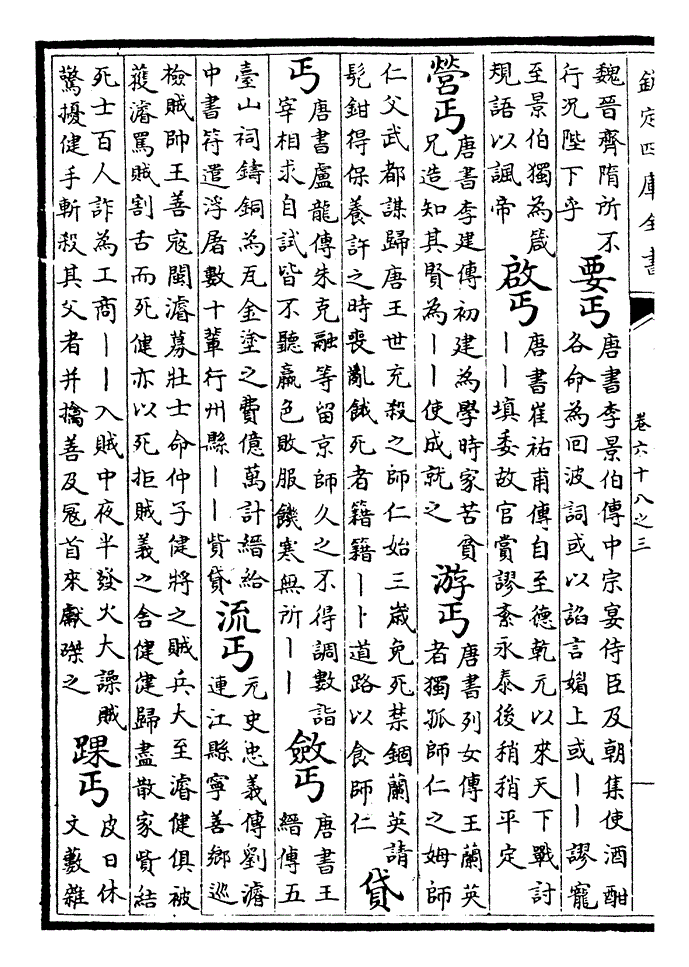 欽定四庫全書
卷六十八之三
魏晉齊隋所不
行况陛下乎
要丐
唐書李景伯傳中宗宴侍臣及朝集使酒酣
各命為回波詞或以諂言媚上或丨丨謬寵
至景伯獨為箴
規語以諷帝
啟丐
唐書崔祐甫傳自至德乾元以來天下戰討
丨丨填委故官賞謬紊永泰後稍稍平定
營丐
唐書李建傳初建為學時家苦貧
兄造知其賢為丨丨使成就之
游丐
唐書列女傳王蘭英
者獨孤師仁之姆師
仁父武都謀歸唐王世充殺之師仁始三歲免死禁錮蘭英請
髠鉗得保養許之時喪亂餓死者籍籍丨丨道路以食師仁
貸
丐
唐書盧龍傳朱克融等留京師久之不得調數詣
宰相求自試皆不聽羸色敗服饑寒無所丨丨
斂丐
唐書王
縉傳五
臺山祠鑄銅為瓦金塗之費億萬計縉給
中書符遣浮屠數十輩行州縣丨丨貲貸
流丐
元史忠義傳劉濬
連江縣寧善鄉巡
檢賊帥王善寇閩濬募壯士命仲子健將之賊兵大至濬健俱被
獲濬罵賊割舌而死健亦以死拒賊義之舍健健歸盡散家貲結
死士百人詐為工商丨丨入賊中夜半發火大譟賊
驚擾健手斬殺其父者并擒善及冦首來獻磔之
踝丐
皮日休
文藪雜